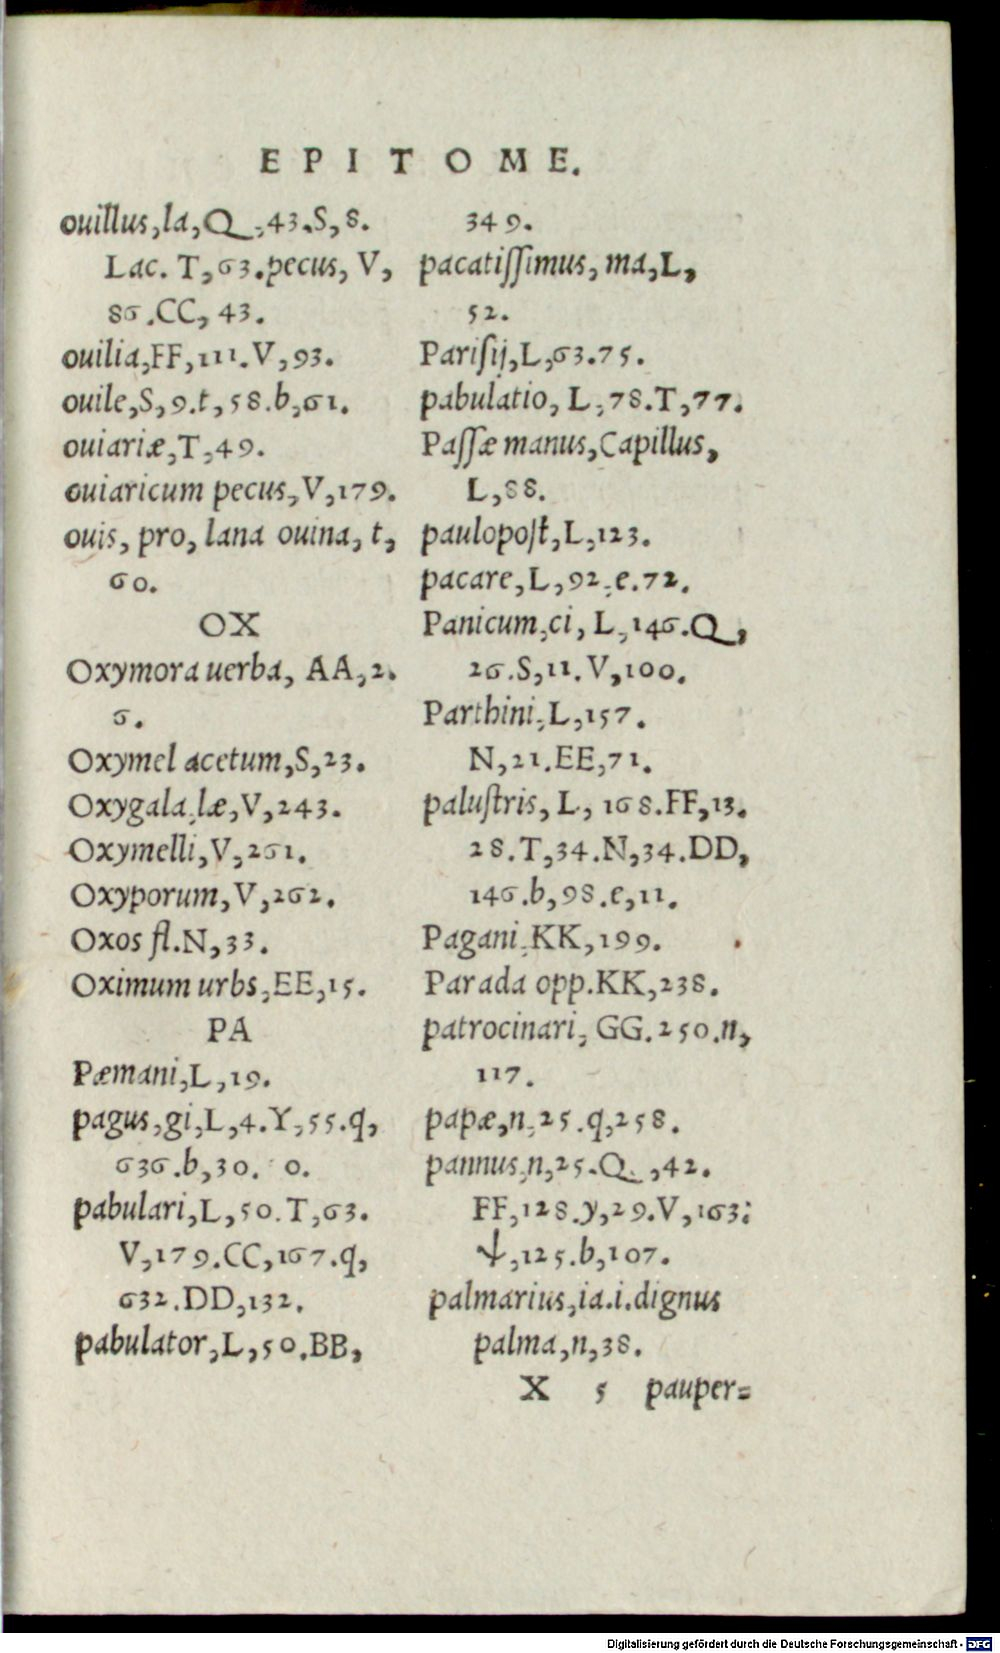 EPITOME.
ouillus,la,Q,43.S,8.
Lac. T,63.pecus, V,
86.CC, 43.
ouilia,FF,111.V,93.
ouile,S,9.t,58.b,61.
ouiariæ,T,49.
ouiaricum pecus,V,179.
ouis, pro, lana ouina, t,
60.
OX
Oxymora uerba, AA,2.
6.
Oxymel acetum,S,23.
Oxygala,læ,V,243.
Oxymelli,V,261.
Oxyporum,V,262.
Oxos fl.N,33.
Oximum urbs,EE,15.
PA
Pæmani,L,19.
pagus,gi,L,4.Y,55.q,
636.b,30. 0.
pabulari,L,50.T,63.
V,179.CC,167.q,
632.DD,132.
pabulator,L,50.BB,
349.
pacatiſſimus, ma,L,
52.
Pariſij,L,63.75.
pabulatio, L,78.T,77.
Paſſæ manus,Capillus,
L,88.
paulopoſt,L,123.
pacare,L,92,e.72.
Panicum,ci, L,146.Q,
26.S,11.V,100.
Parthini,L,157.
N,21.EE,71.
paluſtris, L, 168.FF,13.
28.T,34.N,34.DD,
146.b,98.e,11.
Pagani,KK,199.
Parada opp.KK,238.
patrocinari, GG.250.n,
117.
papæ,n,25.q,258.
pannus,n,25.Q,42.
FF,128.y,29.V,163:
ψ,125.b,107.
palmarius,ia.i.dignus
palma,n,38.
X 5 pauper=
Digitalisierung gefördert durch die Deutsche Forschungsgemeinschaft - DFG